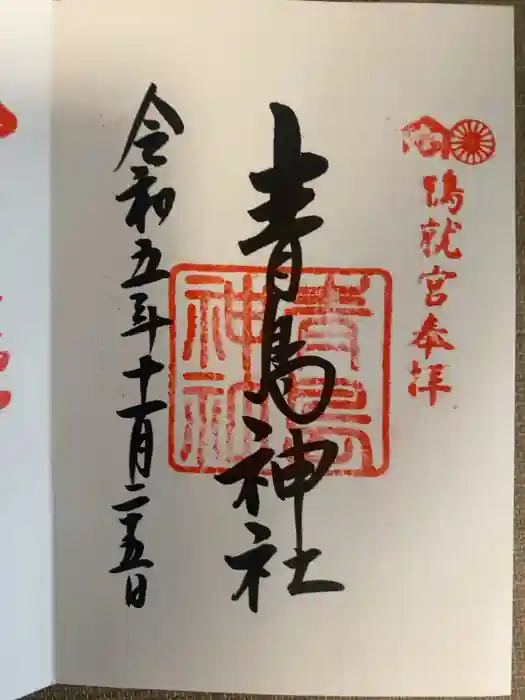 鵄就宮奉拝
青島神社
青島神社
令和五年十一月二十五日